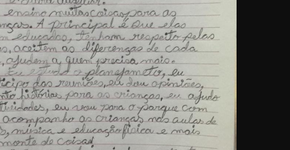 ensino muitas coisas para as
ças. A principal é que elas
educadas, tenham respeito pelas
, aceitem as diferenças de cada
, ajudem a quem precisa mais.
Eu ajudo o planejamento, eu
ticipo das reuniões, eu dou opiniões,
nto histórias para as crianças, eu ajudo
tividades, eu vou para o parque com
acompanho as crianças nas aulas de
s, música e educação física e mais
monte de coisas,